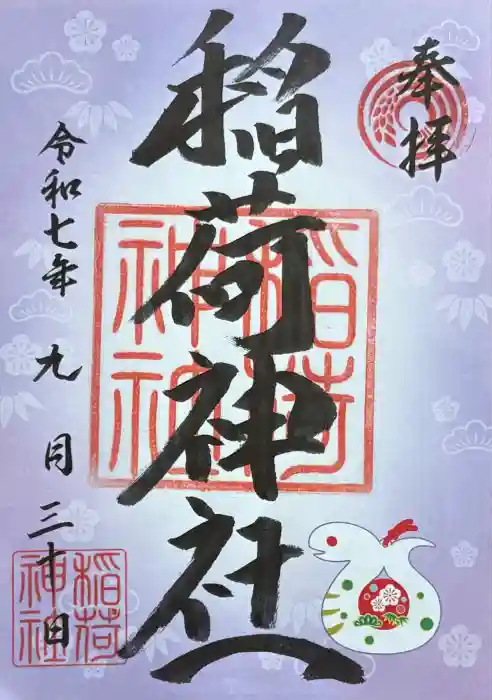 奉拝
稲荷神社
稲荷
神社
令和七年 九月 三十日
稲荷
神社